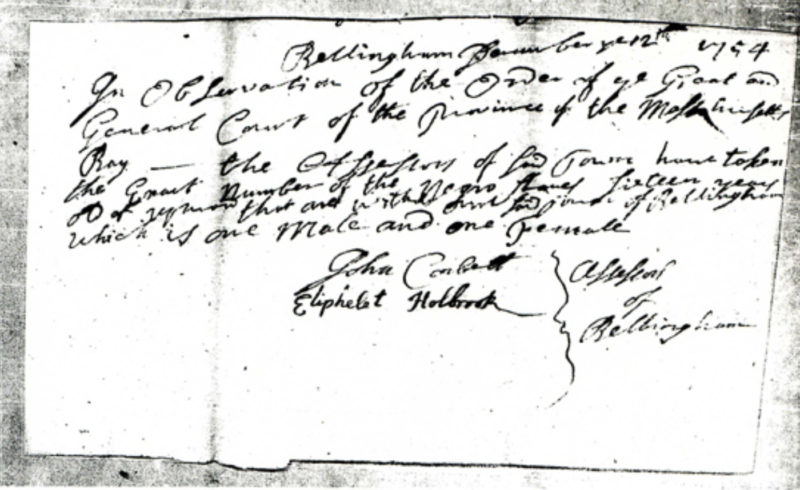 Bellingham December ye 12th 1754
In Observation of the Order of ye Great and
General Court of the Province of the Massachusetts
Bay — the Assessors of sd Town have taken
the Exact Number of the Negro Slaves Sixteen years
old & upward that are within our sd Town of Bellingham
which is one Male and one Female
John Corbett
Eliphelet Holbrook
Assessors
of
Bellingham